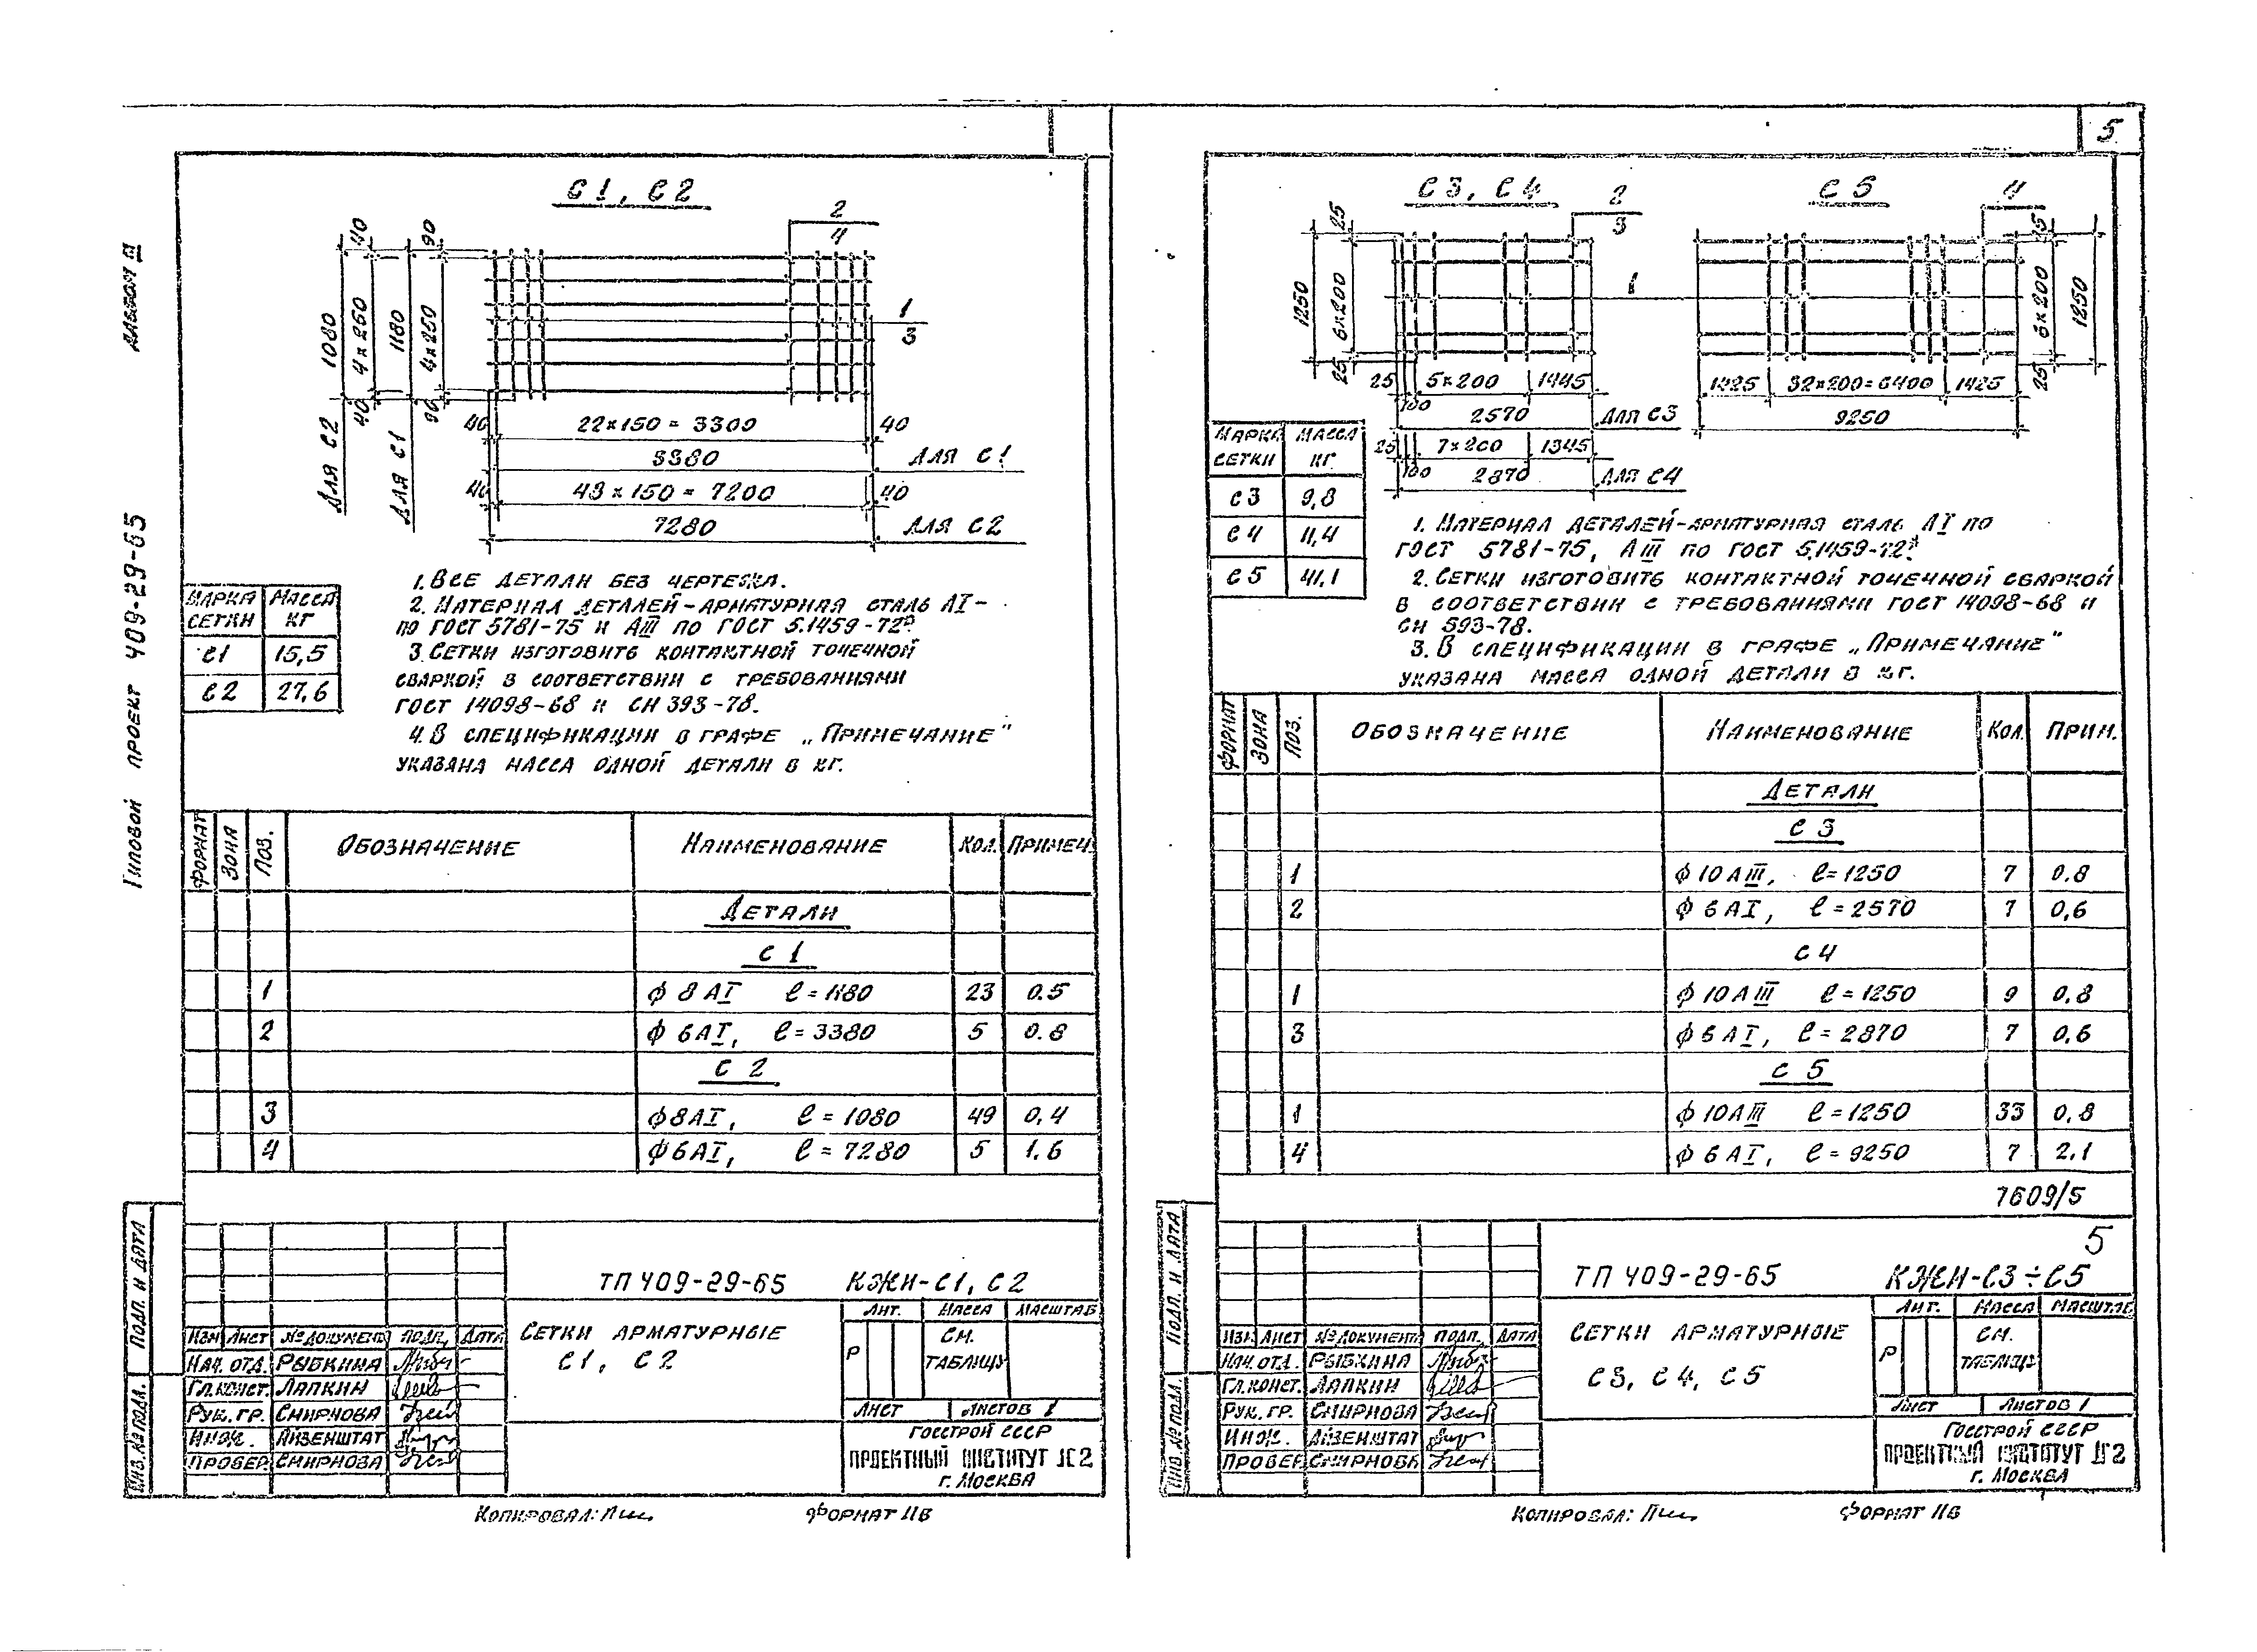 5
Типовой проект 409-29-65
Альбом III
С1, С2
2
4
1
3
40
90
1080
4×250
1180
4×250
40
90
Для С2
Для С1
40
22×150 = 3300
40
3380
Для С1
40
48 × 150 = 7200
40
7280
Для С2
Марка сетки
Масса кг
С1
15,5
С2
27,6
1. Все детали без чертежа.
2. Материал деталей-арматурная сталь АI-
по ГОСТ 5781-75 и АIII по ГОСТ 5.1459-72*.
3. Сетки изготовить контактной точечной
сваркой в соответствии с требованиями
ГОСТ 14098-68 и СН 393-78.
4. В спецификации в графе „Примечание"
указана масса одной детали в кг.
Формат
Зона
Поз.
Обозначение
Наименование
Кол.
Примеч.
Детали
С 1
1 ф 8 АI l = 1180 23 0.5
2 ф 6 АI, l = 3380 5 0.8
С 2
3 ф 8 АI, l = 1080 49 0,4
4 ф 6 АI, l = 7280 5 1.6
Подп. и дата
Инв. № подл.
ТП 409-29-65 КЖИ-С1, С2
Лит. Масса Масштаб
Изм Лист № документ. Подп. Дата
Сетки арматурные
С1, С2
Р
См. таблицу
Нач. отд. Рыбкина
Гл. конст. Лапкин
Рук. гр. Смирнова
Лист Листов 1
Инж. Айзенштат
Провер. Смирнова
Госстрой СССР
Проектный институт №2
г. Москва
Копировал:
Формат 11В
С3, С4
2
3
1
25
1250
6×200
25
25
100
5×200
1445
2570
Для С3
25
100
7×200
1345
2870
Для С4
С5
4
25
6×200
1250
25
1425
32×200=6400
1425
9250
Марка сетки
Масса кг.
С3
9,8
С4
11,4
С5
41,1
1. Материал деталей-арматурная сталь АI по
ГОСТ 5781-75, АIII по ГОСТ 5.1459-72*.
2. Сетки изготовить контактной точечной сваркой
в соответствии с требованиями ГОСТ 14098-68 и
СН 393-78.
3. В спецификации в графе „Примечание"
указана масса одной детали в кг.
Формат
Зона
Поз.
Обозначение
Наименование
Кол.
Прим.
Детали
С 3
1 ф 10 АIII, l = 1250 7 0.8
2 ф 6 АI, l = 2570 7 0,6
С 4
1 ф 10 АIII l = 1250 9 0,8
3 ф 6 АI, l = 2870 7 0,6
С 5
1 ф 10 АIII l = 1250 33 0,8
4 ф 6 АI, l = 9250 7 2,1
7609/5
5
Подп. и дата
Инв. № подл.
ТП 409-29-65 КЖИ-С3÷С5
Лит. Масса Масштаб
Изм. Лист № документ. Подп. Дата
Сетки арматурные
С3, С4, С5
Р
См. таблицу
Нач. отд. Рыбкина
Гл. конст. Лапкин
Рук. гр. Смирнова
Лист Листов 1
Инж. Айзенштат
Провер. Смирнова
Госстрой СССР
Проектный институт №2
г. Москва
Копировал:
Формат 11В